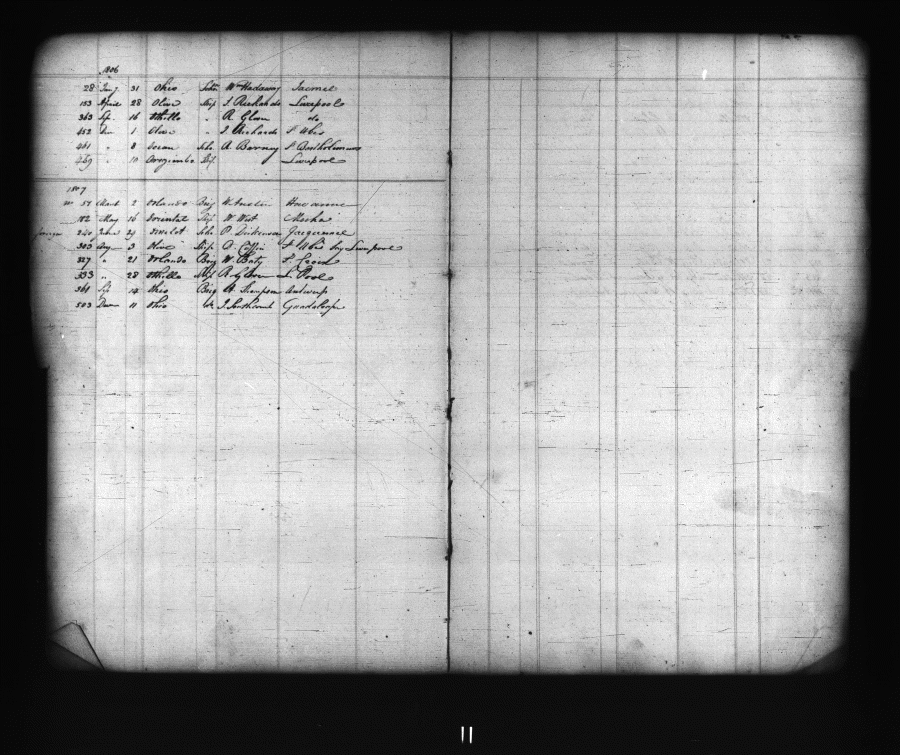 1806
28 Jany 31 Ohio Schr W Hadaway Jacmel
153 April 28 Olive Ship J Rickards Liverpool
363 Sep 16 Othello " R Glen do
452 Dec 1 Olive " J Richards St Ubes
461 " 8 Ocean Schr A Barney St Bartholomews
469 " 10 Ship Liverpool
1807
57 March 2 Orlando Brig W Austin Havanna
182 May 16 Oriental Ship W West Mocha
240 June 29 Schr P Dickenson Jacquemel
303 Aug 3 Olive Ship O. Coffin St Ubes by Liverpool
327 " 21 Orlando Brig W Baty St Croix
333 " 28 Othello Ship R Glen L. Pool
361 Sep 14 Ohio Brig Thompson Antwerp
503 Decr 11 Ohio do J Southcomb Guadaloupe
11